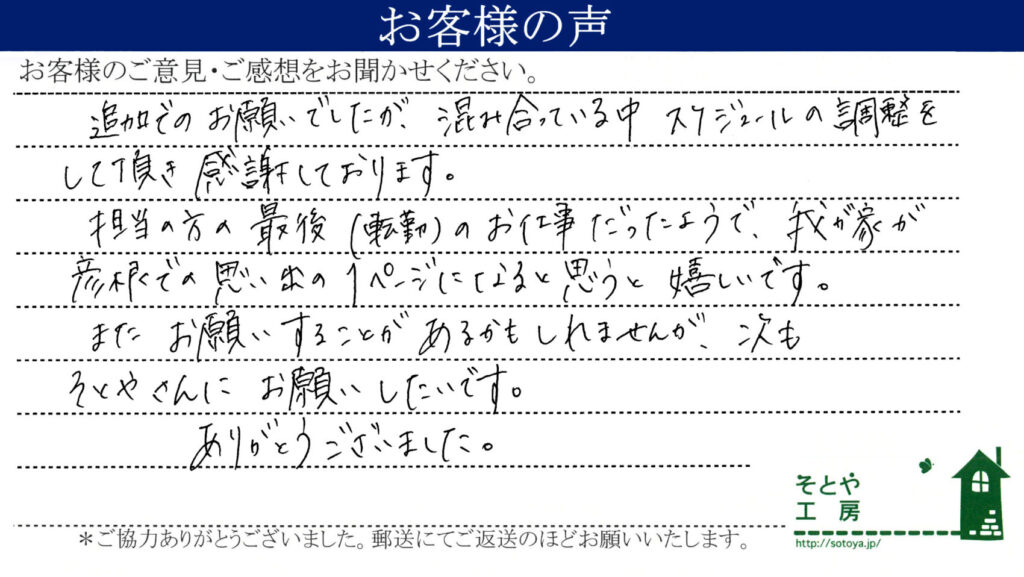 お客様の声
お客様のご意見・ご感想をお聞かせください。
追加でのお願いでしたが、混み合っている中 スケジュールの調整を
して頂き感謝しております。
担当の方の最後(転勤)のお仕事だったようで、我が家が
彦根での思い出の1ページになると思うと嬉しいです。
また お願いすることがあるかもしれませんが、次も
そとやさんに お願いしたいです。
ありがとうございました。
そとや
工房
http://sotoya.jp/
*ご協力ありがとうございました。郵送にてご返送のほどお願いいたします。